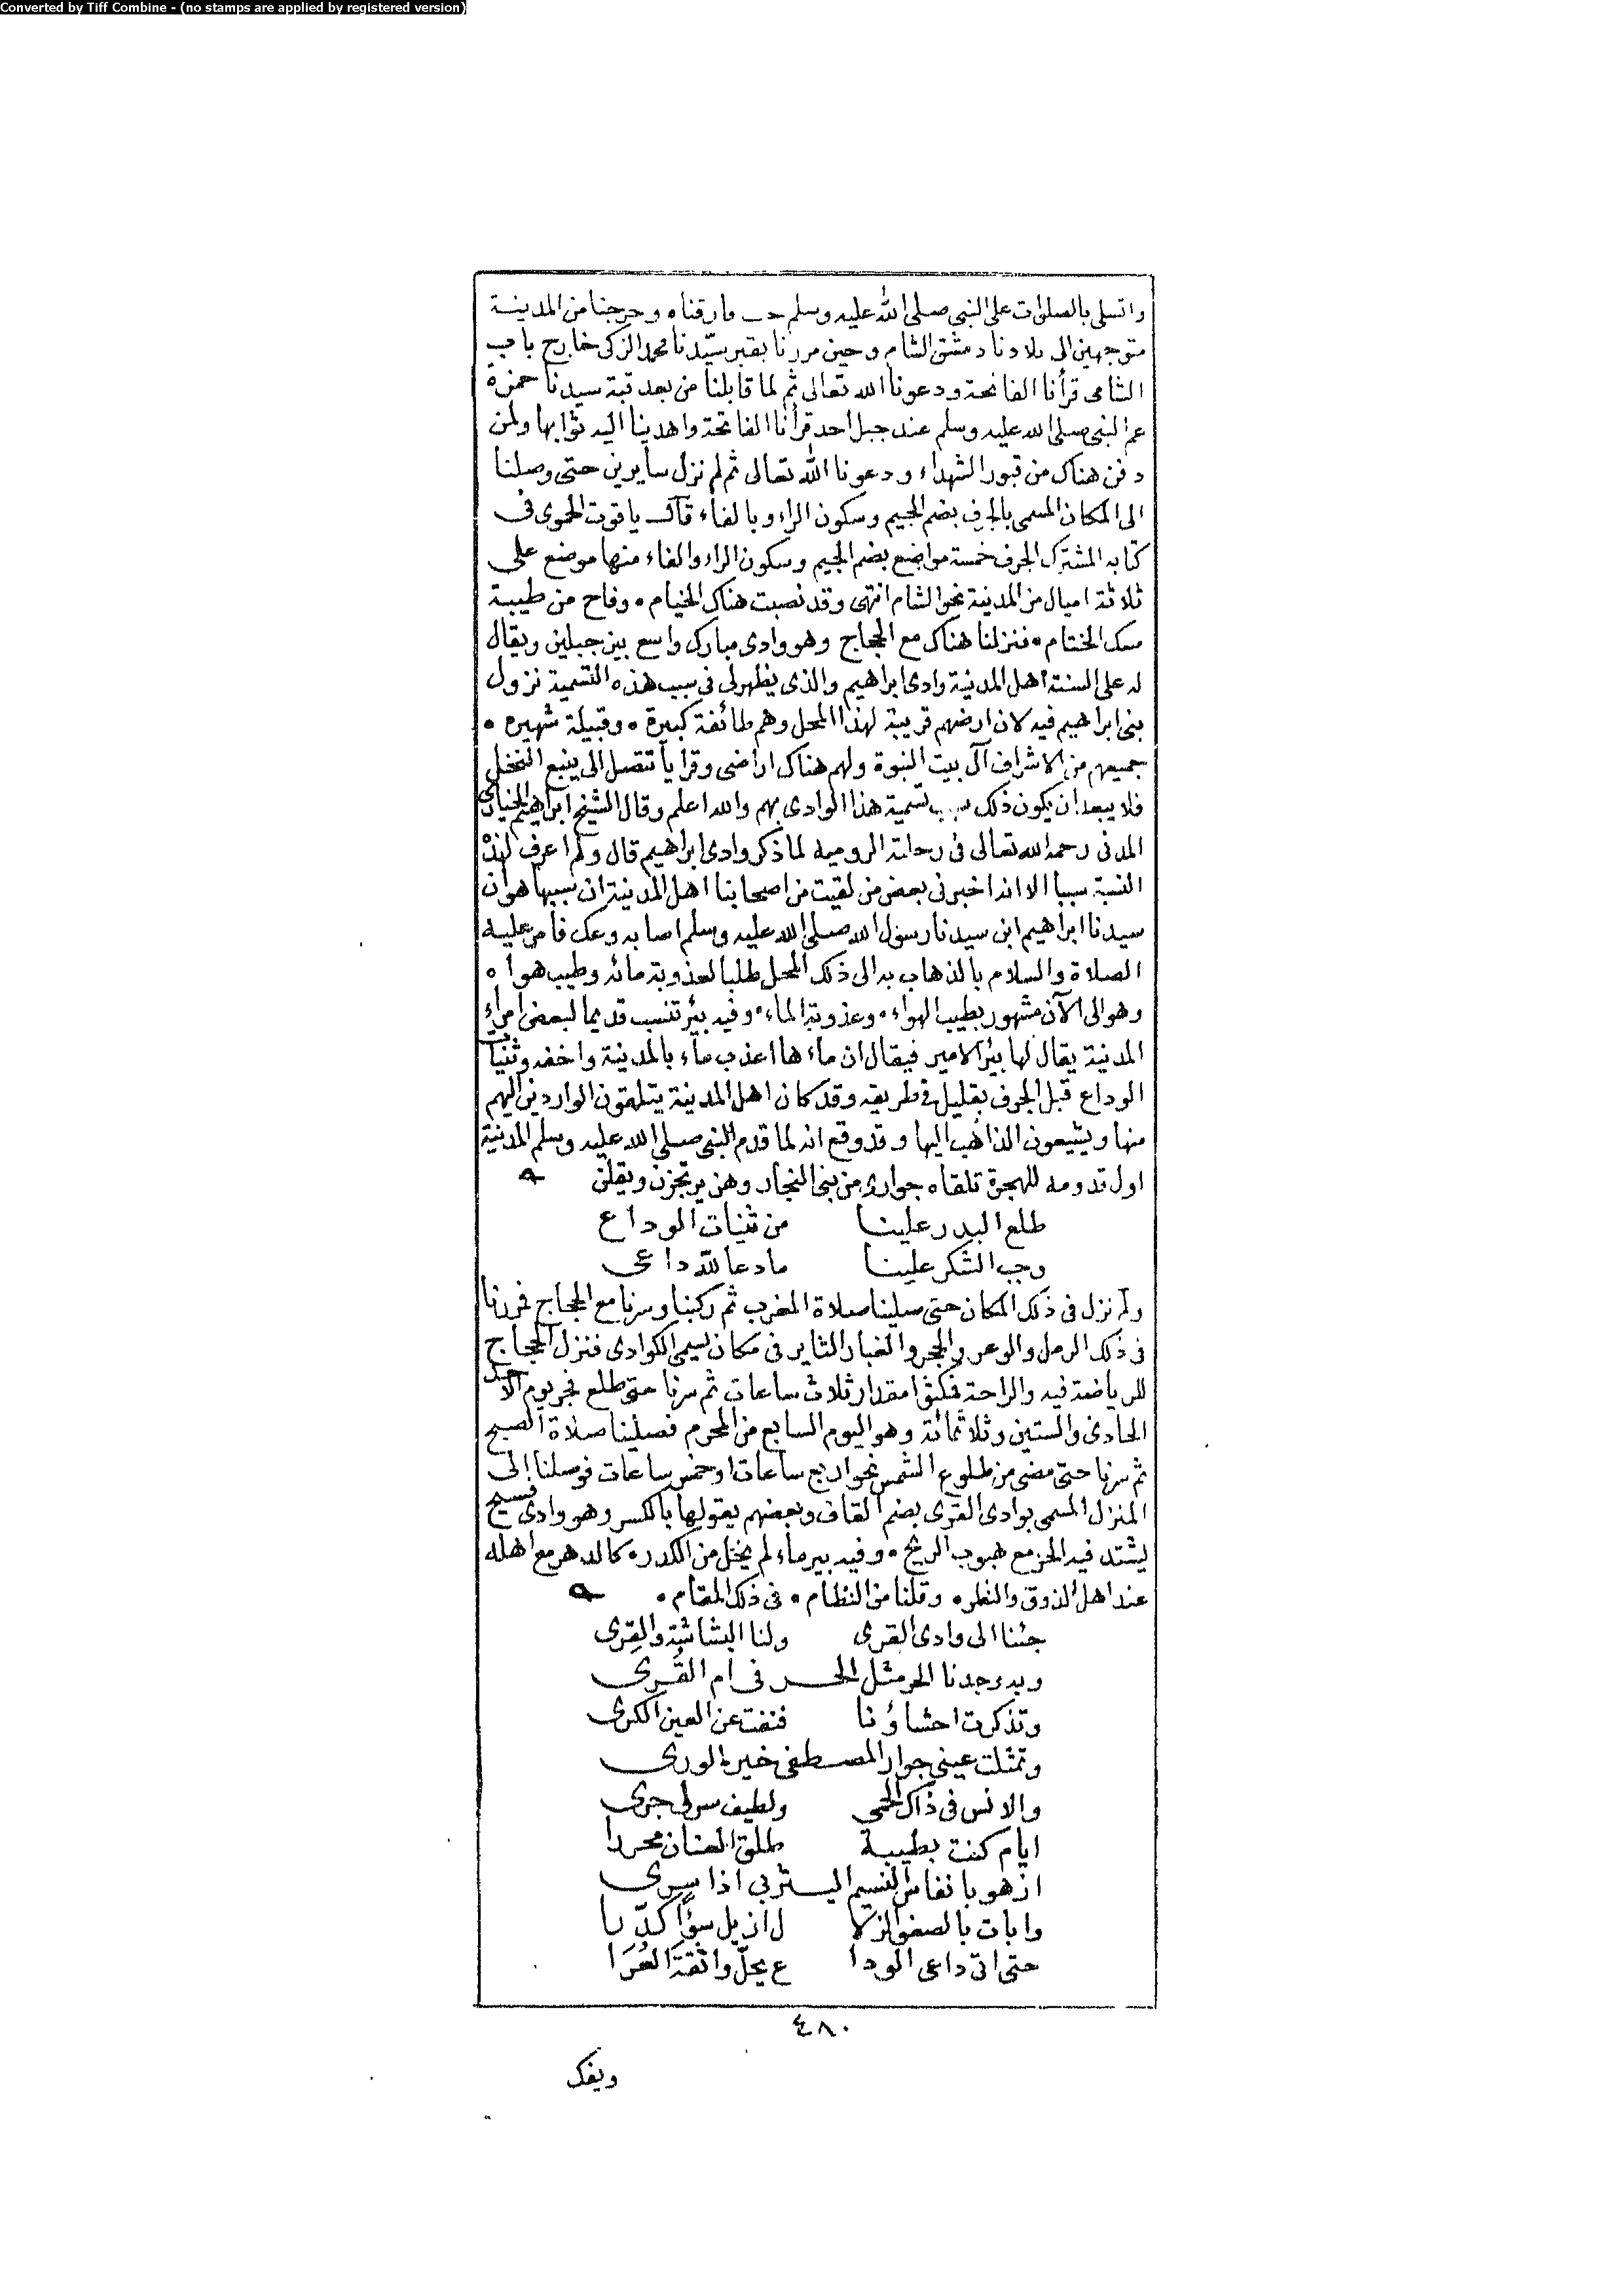 Converted by Tiff Combine - (no stamps are applied by registered version)
واتسلى بالصلوات على النبى صلى الله عليه وسلم فارقناه وخرجنا من المدينة
متوجهين الى بلادنا دمشق الشام وحين مررنا بقبر سيدنا محمد الزكى خارج باب
الشامى قرأنا الفاتحة ودعونا الله تعالى ثم لما قابلنا من بعد قبة سيدنا حمزة
عم النبى صلى الله عليه وسلم عند جبل احد قرأنا الفاتحة واهدينا اليه ثوابها ولمن
دفن هناك من قبور الشهداء ودعونا الله تعالى ثم لم نزل سايرين حتى وصلنا
الى المكان المسمى بالجرف بضم الجيم وسكون الراء وبالفاء قال ياقوت الحموى فى
كتابه المشترك الجرف خمسة مواضع بضم الجيم وسكون الراء والفاء منها موضع على
ثلاثة اميال من المدينة نحو الشام انتهى وقد نصبت هناك الخيام ٠ وفاح من طيبة
مسك الختام ٠ فنزلنا هناك مع الحجاج وهو وادى مبارك واسع بين جبلين ويقال
له على السنة اهل المدينة وادى ابراهيم والذى يظهر لى فى سبب هذه التسمية نزول
بنى ابراهيم فيه لان ارضهم قريبة لهذا المحل وهم طائفة كبيرة ٠ وقبيلة شهيره ٠
جميعهم من الاشراف آل بيت النبوة ولهم هناك اراضى وقرايا تتصل الى ينبع النخل
فلا يبعد ان يكون ذلك سبب تسمية هذا الوادى بهم والله اعلم وقال الشيخ ابراهيم الخيارى
المدنى رحمه الله تعالى فى رحلته الروميه لما ذكر وادى ابراهيم قال ولم اعرف لهذه
النسبة سببا الا انه اخبرنى بعض من لقيت من اصحابنا اهل المدينة ان سببها هو ان
سيدنا ابراهيم ابن سيدنا رسول الله صلى الله عليه وسلم اصابه وعك فامر عليه
الصلاة والسلام بالذهاب به الى ذلك المحل طلبا لعذوبة مائه وطيب هواه
وهو الى الآن مشهور بطيب الهواء ٠ وعذوبة الماء ٠ وفيه بئر تنسب قديما لبعض امراء
المدينة يقال لها بئر الامير فيقال ان ماءها اعذب ماء بالمدينة واخفه وثنيات
الوداع قبل الجرف بقليل فى طريقه وقد كان اهل المدينة يتلقون الواردين اليهم
منها ويشيعون الذاهب اليها وقد وقع انه لما قدم النبى صلى الله عليه وسلم المدينة
اول قدومه للهجرة تلقاه جوارى من بنى النجار وهن يرتجزن ويقلن
طلع البدر علينا من ثنيات الوداع
وجب الشكر علينا ما دعا لله داعى
ولم نزل فى ذلك المكان حتى صلينا صلاة المغرب ثم ركبنا وسرنا مع الحجاج فمررنا
فى ذلك الرمل والوعر والحجر والغبار الثاير فى مكان يسمى الكوادى فنزل الحجاج
للرياضة فيه والراحة فمكثوا مقدار ثلاث ساعات ثم سرنا حتى طلع فجر يوم الاحد
الحادى والستين وثلاثمائة وهو اليوم السابع من المحرم فصلينا صلاة الصبح
ثم سرنا حتى مضى من طلوع الشمس نحو اربع ساعات او خمس ساعات فوصلنا الى
المنزل المسمى بوادى القرى بضم القاف وبعضهم يقولها بالكسر وهو وادى فسيح
يشتد فيه الحر مع هبوب الريح ٠ وفيه بير ماء لم يخل من الكدر ٠ كالدهر مع اهله
عند اهل الذوق والنظر ٠ وقلنا من النظام ٠ فى ذلك المقام ٠
جئنا الى وادى القرى ولنا البشاشة والقِرى
وبه وجدنا الحر مثل الحر فى ام القُرى
وتذكرت احشاؤنا فنفت عن العين الكرى
وتمثلت عينى جوار المصطفى خير الورى
والانس فى ذاك الحمى ولطيف سر لى جرى
ايام كنت بطيبة طلق العنان محررا
ازهو بانفاس النسيم اليثربى اذا سرى
وابات بالصفو الزلا ل ازيل سؤا كدّرا
حتى اتى داعى الودا ع يحلّ واثقة العُرَا
٤٨٠
ويفك